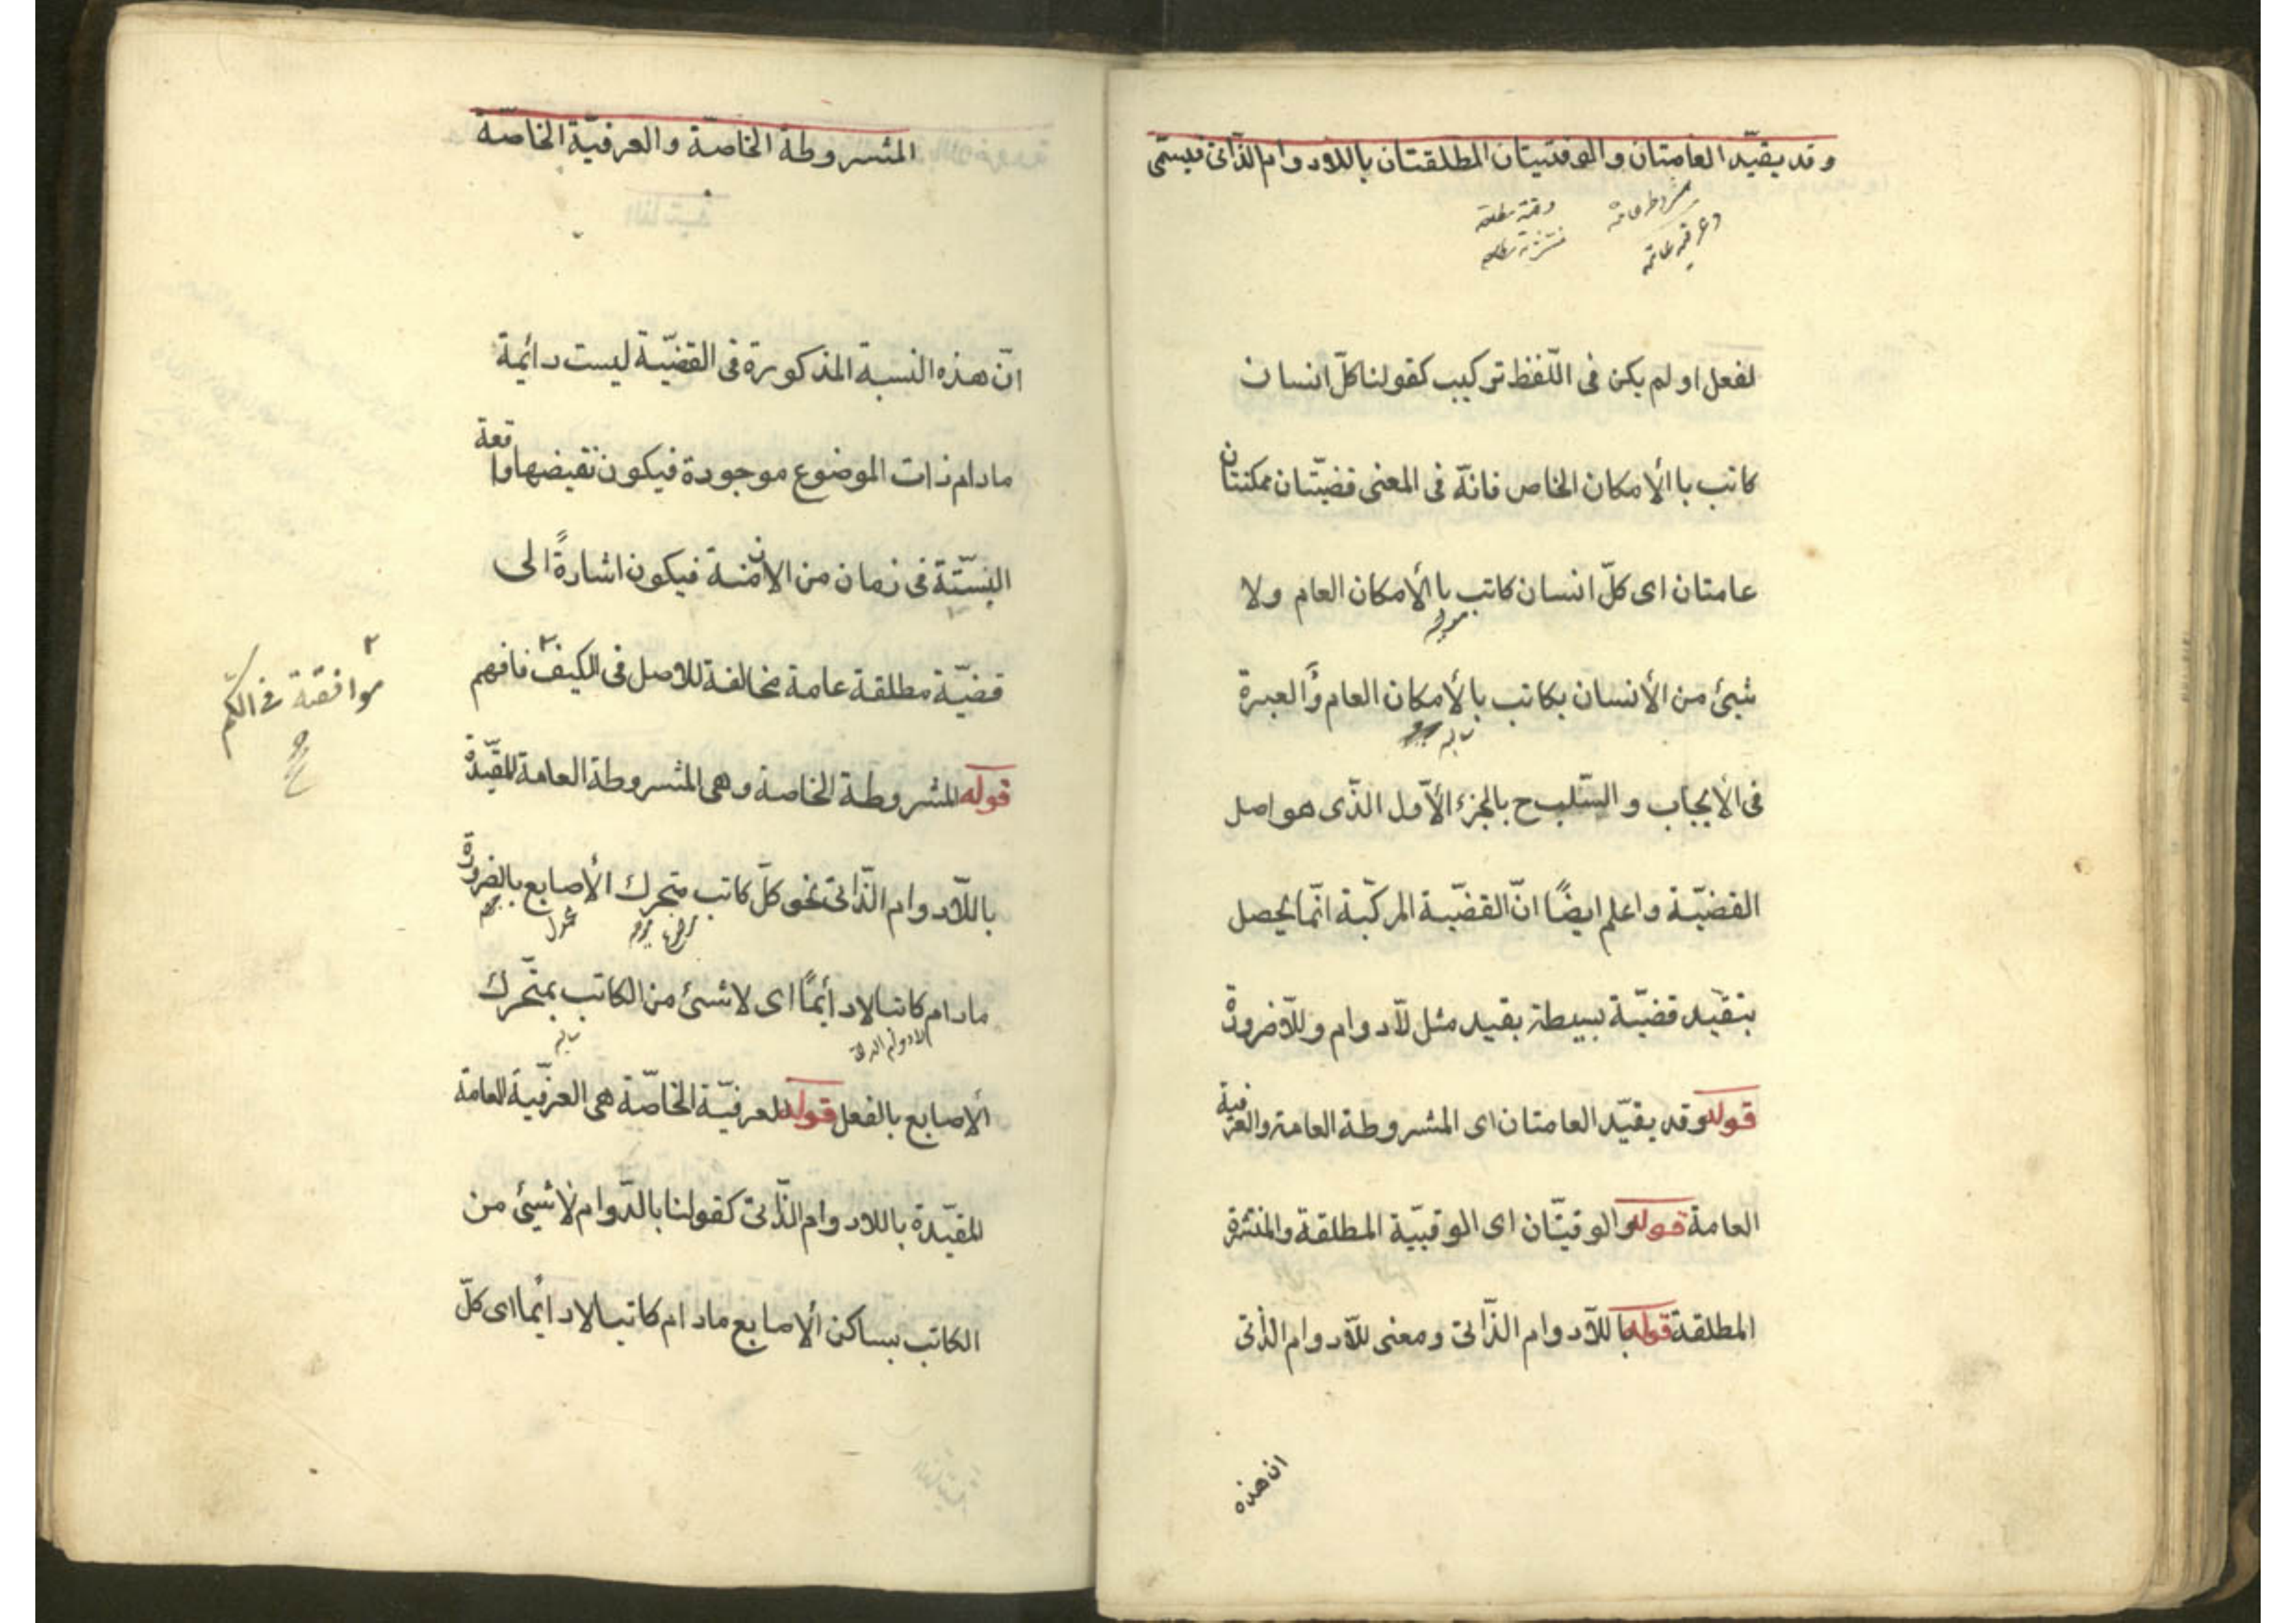 وقد يقيّد العامتان والوقتيتان المطلقتان باللادوام الذّاتى فيسمّى
مشروطه عامه
وعرفيه عامه
وقتية مطلقه
منتشرة مطلقه
لفعل او لم يكن فى اللّفظ تركيب كقولنا كلّ انسان
كاتب باالأمكان الخاص فانّه فى المعنى قضيّتان ممكنتان
عامتان اى كلّ انسان كاتب باالأمكان العام ولا
موجبه
شيئ من الأنسان بكاتب بالأمكان العام والعبرة
سالبه
فى الأيجاب والسّلب ح بالجزء الأوّل الذّى هو اصل
القضيّة واعلم ايضًا انّ القضيّة المركّبة انّما يحصل
بتقيد قضيّة بسيطة بقيد مثل لآدوام وللآضرورة
قوله وقد يقيّد العامتان اى المشروطة العامة والعرفية
العامة قوله والوقتيّان اى الوقتيّة المطلقة والمنتشرة
المطلقة قوله باللآدوام الذّاتى ومعنى للآدوام الذّاتى
ان هذه
المشروطة الخاصّة والعرفيّة الخاصّة
انّ هذه النسبة المذكورة فى القضيّة ليست دائمة
مادام ذات الموضوع موجودة فيكون نقيضها واقعة
البتّة فى زمان من الازمنة فيكون اشارةً الى
قضيّة مطلقة عامة مخالفة للاصل فى الكيف ٢ فافهم
٢ موافقة في الكم
قوله المشروطة الخاصة وهى المشروطة العامة المقيّدة
باللّادوام الذّاتى نحو كلّ كاتب متحرك الأصابع بالضرورة
مادام كاتبا لادأيمًا اى لاشئ من الكاتب بمتّحرك
لادوام الذاتى
سالبه
الأصابع بالفعل قوله العرفيّة الخاصّة هى العرفيّة العامة
المقيّدة باللادوام الذّاتى كقولنا بالدّوام لاشيئ من
الكاتب بساكن ألأصابع مادام كاتبا لادائما اى كلّ